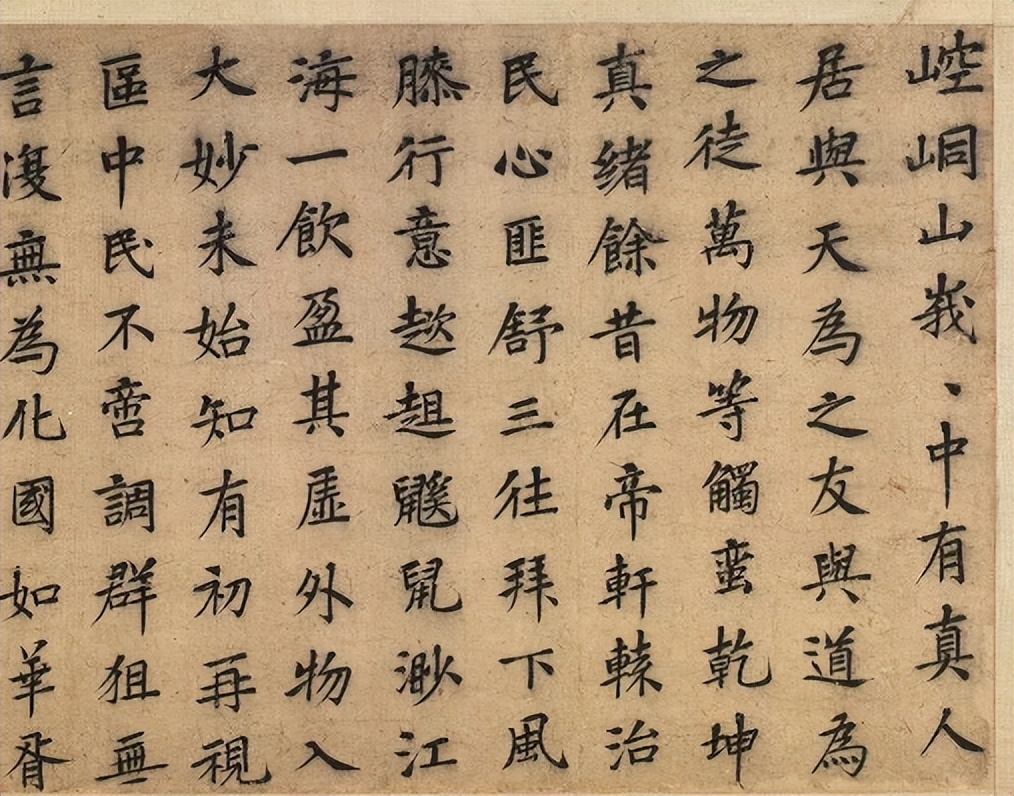 崆峒山峩、中有真人
居與天為之友與道為
之徒萬物等觸蛮乾坤
真緒餘昔在帝軒轅治
民心匪舒三往拜下風
膝行意趑趄鼷鼠渺江
海一飲盈其虛外物入
大妙未始知有初再視
區中民不啻調群狙無
言復無為化國如華胥